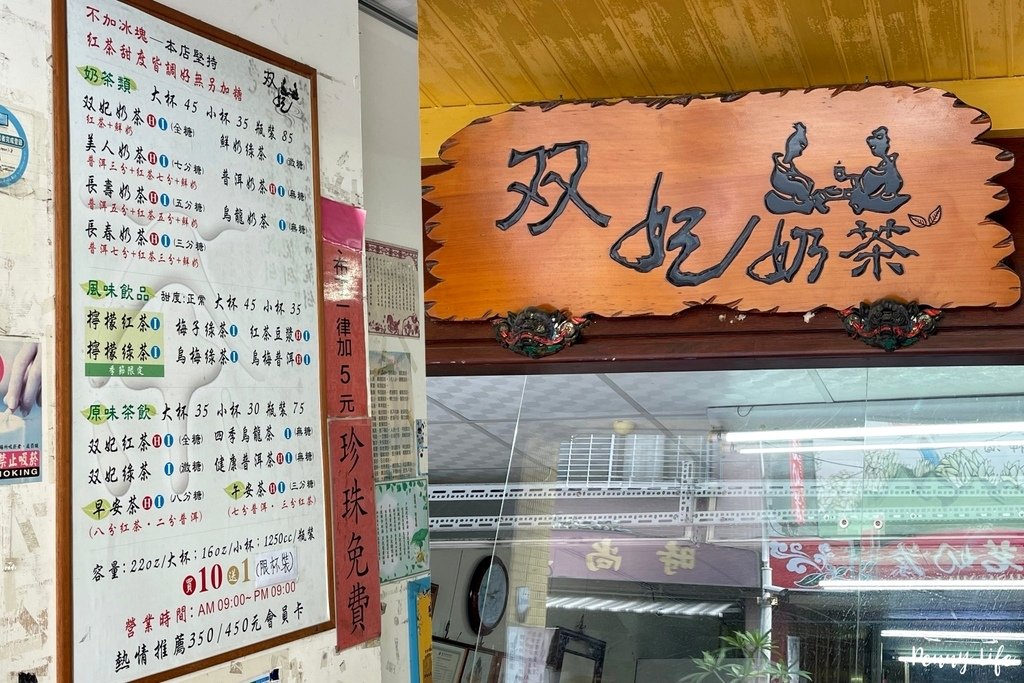 不加冰塊—本店堅持
紅茶甜度皆調好無另加糖
双妃
奶茶類 大杯 45 小杯 35 瓶裝 85
双妃奶茶 H I (全糖) 鮮奶綠茶 I (微糖)
紅茶+鮮奶
美人奶茶 H I (七分糖) 普洱奶茶 H I (無糖)
普洱三分+紅茶七分+鮮奶
長壽奶茶 H I (五分糖) 烏龍奶茶 I (無糖)
普洱五分+紅茶五分+鮮奶
長春奶茶 H I (三分糖)
普洱七分+紅茶三分+鮮奶
風味飲品 甜度:正常 大杯 45 小杯 35
檸檬紅茶 I 梅子綠茶 I 紅茶豆漿 H I
檸檬綠茶 I 烏梅綠茶 I 烏梅普洱 H I
季節限定
原味茶飲 大杯 35 小杯 30 瓶裝 75
双妃紅茶 H I (全糖) 四季烏龍茶 I (無糖)
双妃綠茶 I (微糖) 健康普洱茶 H I (無糖)
早安茶 H I (八分糖) 午安茶 H I (三分糖)
(八分紅茶·二分普洱) (七分普洱·三分紅茶)
容量:22oz/大杯;16oz/小杯;1250cc/瓶裝
買10送1(限杯裝)
營業時間:AM 09:00~PM 09:00
熱情推薦350/450元會員卡
一律加5元
珍珠免費
双妃奶茶
禁止吸菸
OKING
時尚
Penny Life